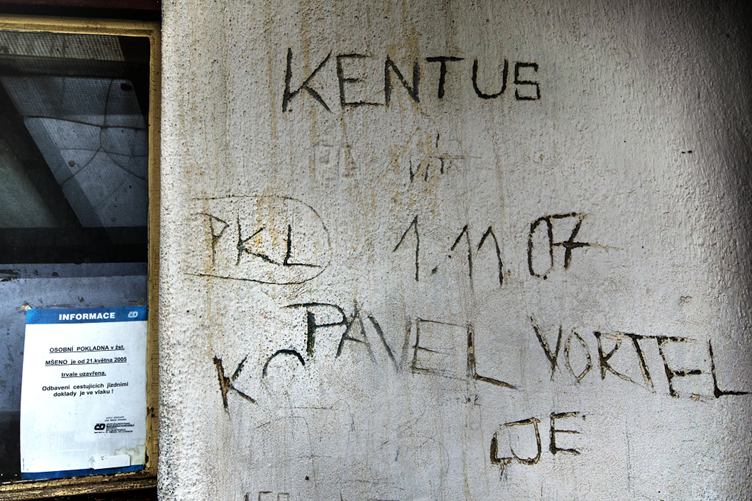 KENTUS
Vít
PKL 1.11.07
PAVEL VORTEL
KO
JE
INFORMACE ČD
OSOBNÍ POKLADNA v žst.
MŠENO je od 21.května 2005
trvale uzavřena.
Odbavení cestujících jízdními
doklady je ve vlaku !
ČD